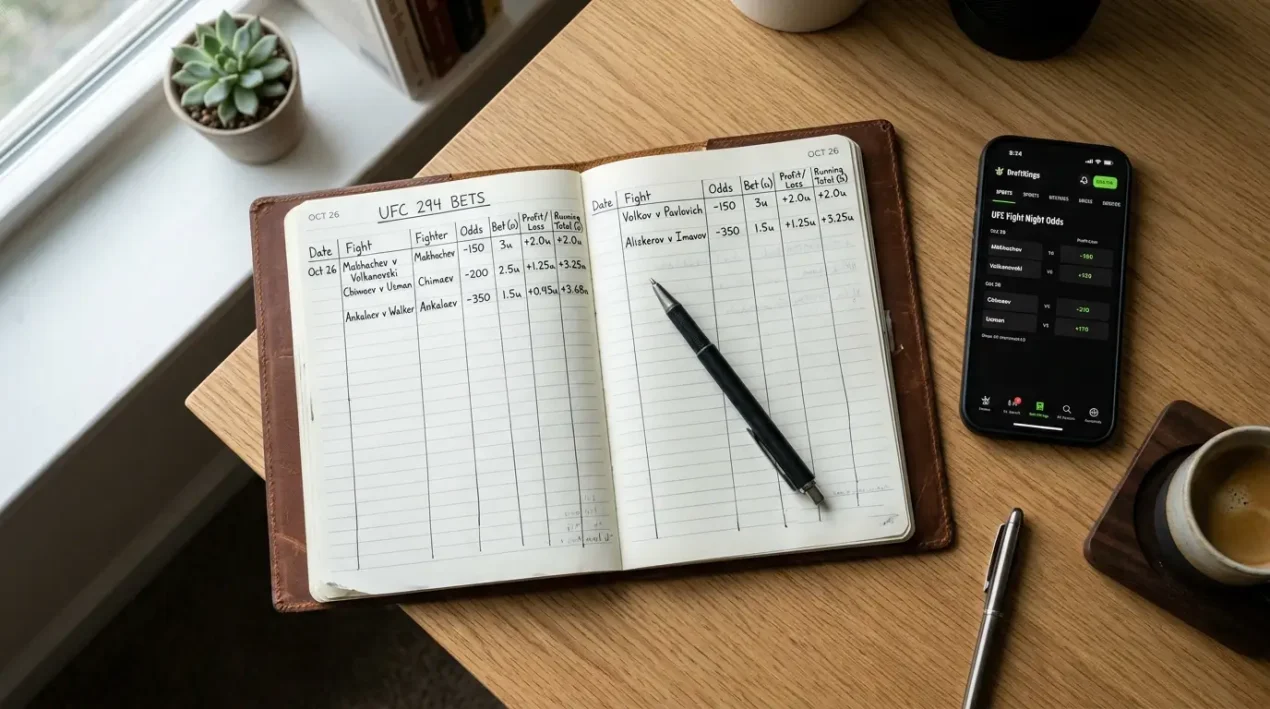 OCT 26
UFC 294 BETS
Date Fight Fighter Odds Bet (u) Profit/ Running
Loss Total (u)
Oct 26 Mabhachev v Makhachev -150 3u +2.0u +2.0u
Volkanovski
Chimaov v Usman Chimaev -200 2.5u +1.25u +3.25u
Ankalaev v Walker Ankalaev -350 1.5u +0.45u +3.68u
OCT 26
Date Fight Odds Bet (u) Profit/ Running
Loss Total
Volkov v Pavlovich -150 3u +2.0u +2.0u
Aliskerov v Imavov -350 1.5u +1.25u +3.25u
8:24
DraftKings
SPORTS SPORTS
UFE Fight Night Odds
Oct 26
-180
Volkanovski vs +120
-210
Usman +170